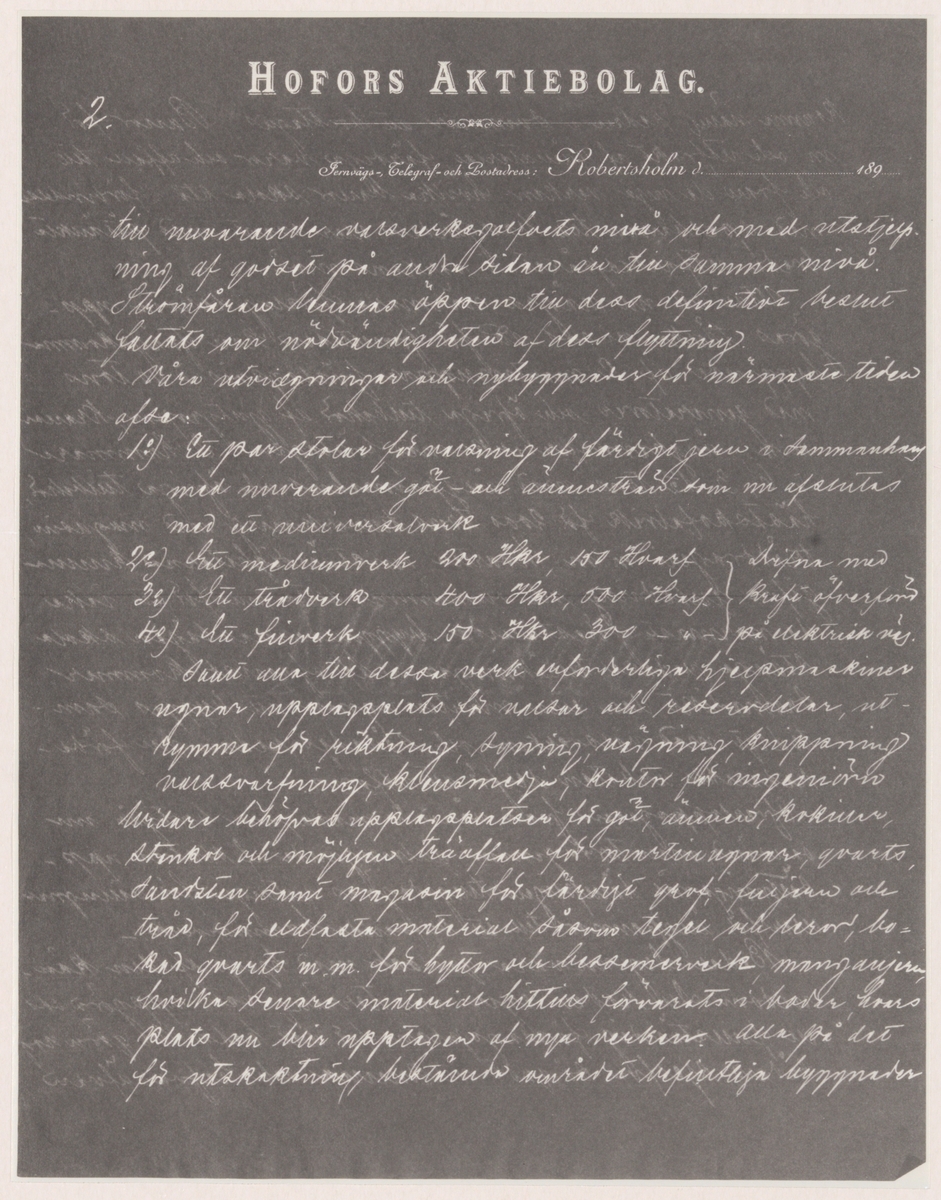 HOFORS AKTIEBOLAG.
2.
Jernvägs-, Telegraf- och Postadress: Robertsholm d. 189
till nuvarande valsverksgolfvets nivå och med utstjelp-
ning af godset på andra sidan än till samma nivå.
Strömfåran lemnas öppen till dess definitivt beslut
fattats om nödvändigheten af dess flyttning.
Våra utvidgningar och nybyggnader för närmaste tiden
afse:
1o) Ett par stolar för valsning af färdigt jern i sammanhang
med nuvarande göt- och ämnesträn som nu afslutas
med ett universalverk
2o) Ett mediumverk 200 Hkr, 150 Hvarf
3o) Ett trådverk 400 Hkr, 500 Hvarf
4o) Ett finverk 150 Hkr 300 - " -
Drifna med
kraft öfverförd
på elektrisk väg.
Samt alla till dessa verk erforderliga hjelpmaskiner
ugnar, upplagsplats för valsar och reservdelar, ut-
rymme för riktning, syning, vägning, knippning
valssvarfning, klensmedja, kontor för ingeniörn
Vidare behöfvas upplagsplatser för göt, ämnen, kokiller,
stenkol och möjligen träaffall för martinugnar, quarts,
sandsten samt magasin för färdigt grof-, finjern och
tråd, för eldfasta material såsom tegel och leror, bo-
kad qvarts m.m. för hyttor och bessemerverk manganjern,
hvilka senare material hittills förvarats i bodar, hvars
plats nu blir upptagen af nya verken. Alla på det
för utskaktning bestämda området befintliga byggnader